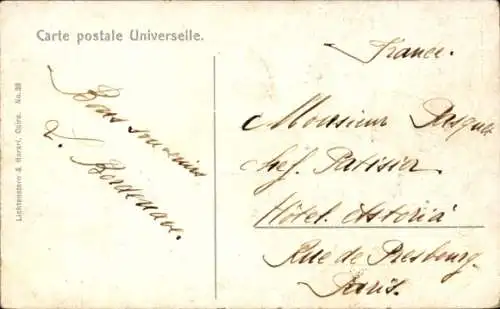 Carte postale Universelle.
Lichtenstern & Harari, Cairo. No. 38
Bons souvenirs
L. Bordenave.
France.
Monsieur Pasquet
Chef. Patissier.
Hôtel Astoria
Rue de Presbourg
Paris.